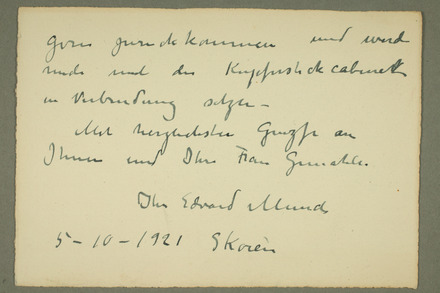 gern zurückkommen und werde
mich mit des Kupferstickcabinett
in Verbindung setzen –
Mit herzlichsten Grüsse an
Ihnen und Ihre Frau Gemahlin
Ihr Edvard Munch
5–10–1921 Skøien